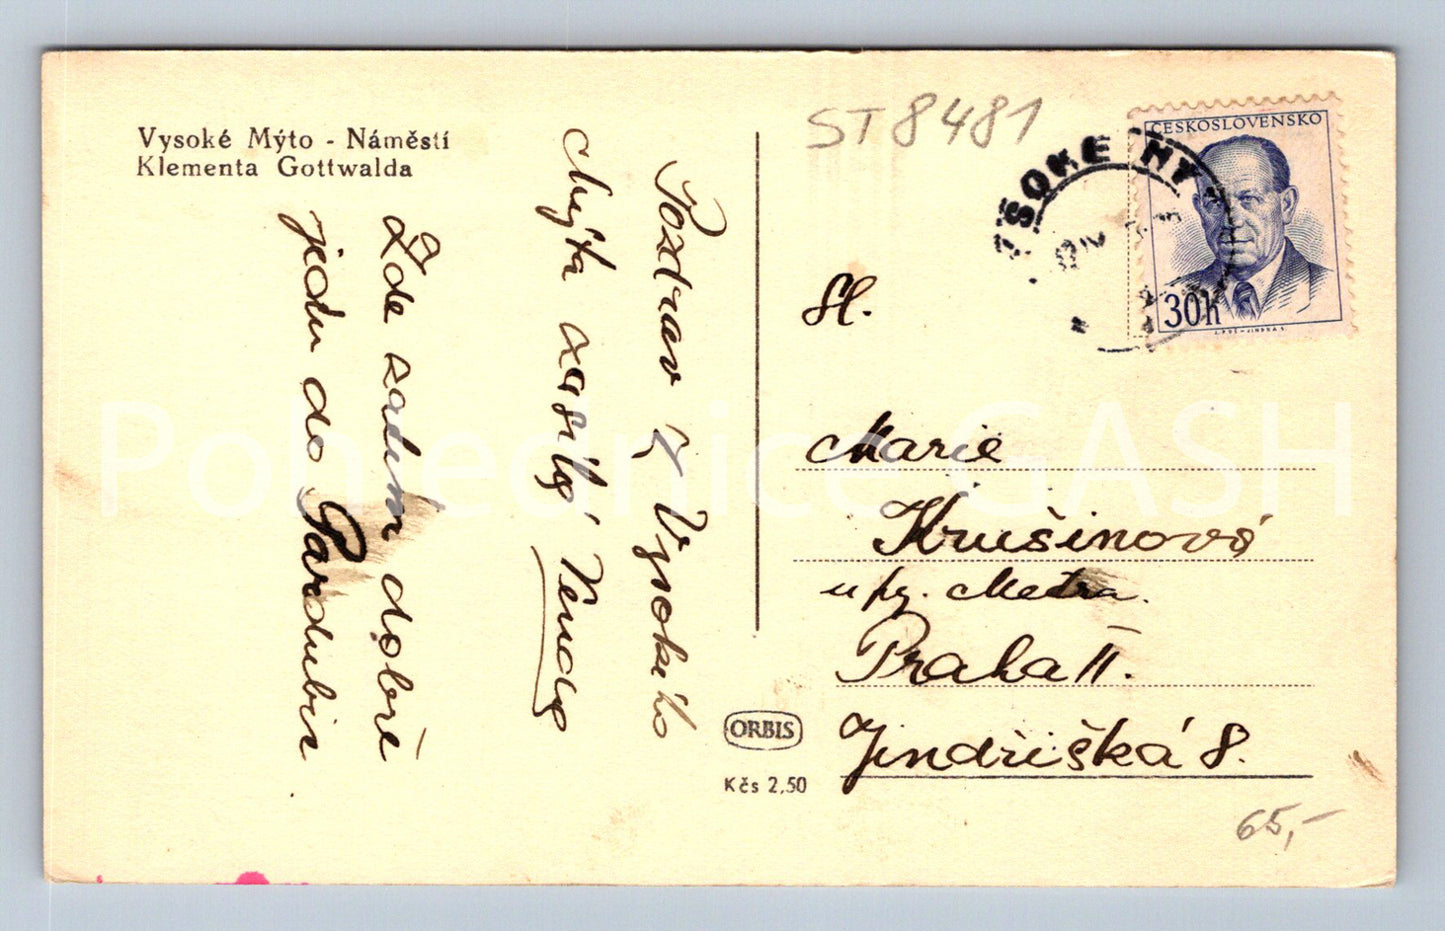 Vysoké Mýto - Náměstí
Klementa Gottwalda
ST 8481
ČESKOSLOVENSKO
30h
YSOKÉ MÝ
Pozdrav z Vysokého
Mýta zasílá
Zde zatím dobré
jedu do Pardubic
Sl.
Marie
Krušinová
Metra.
Praha II.
Jindřišká 8.
ORBIS
Kčs 2,50
65,-
Pohlednice GASH